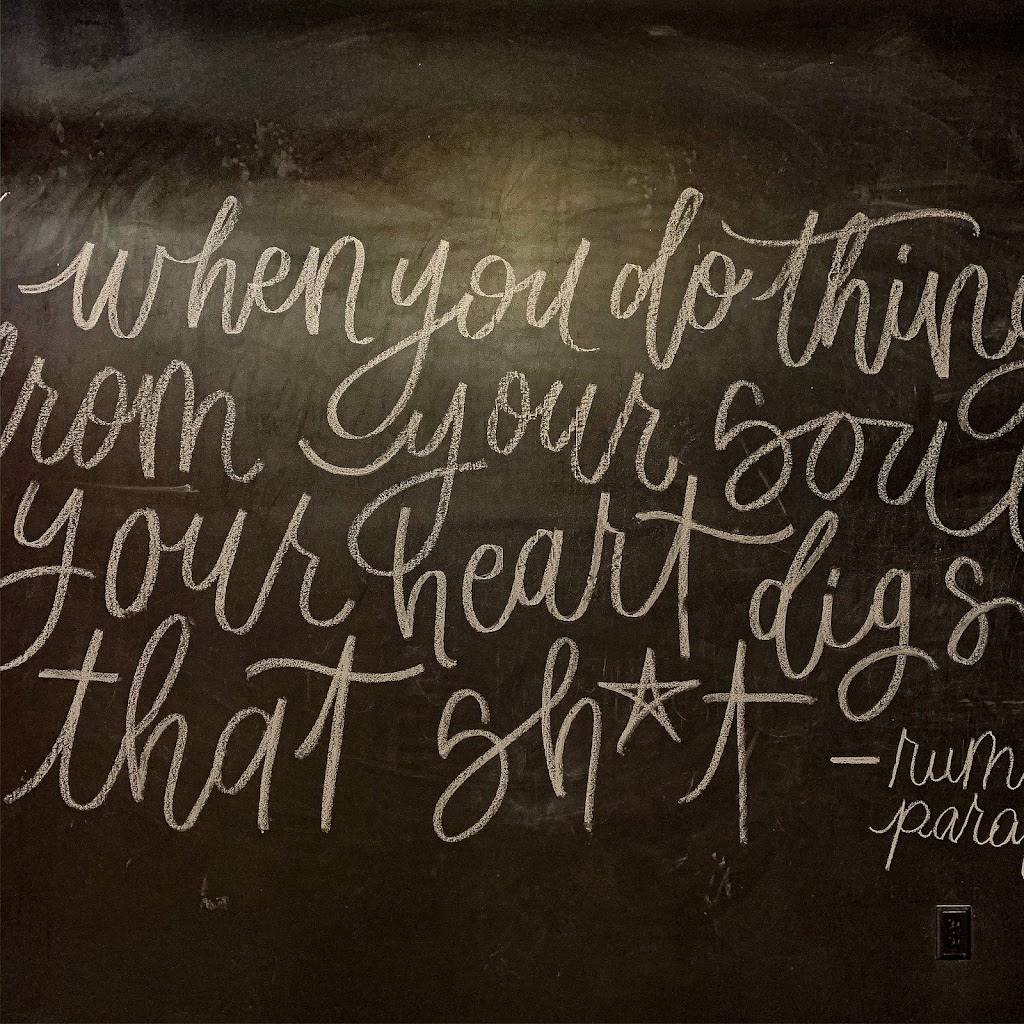 when you do thing
from your soul
your heart digs
that sh*t
- rum
para